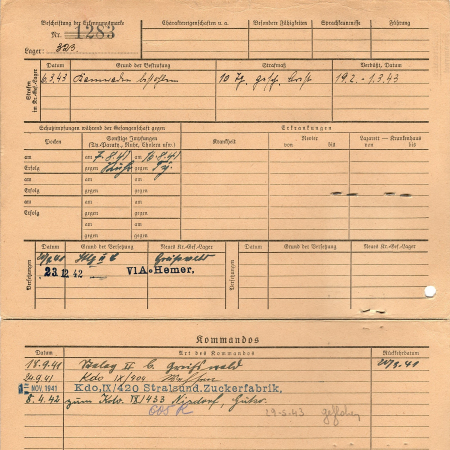 Beschriftung der Erkennungsmarke Charaktereigenschaften u. a. Besondere Fähigkeiten Sprachkenntnisse Führung
Nr. 1283
Lager: 323
Strafen in Kr.-Gef.-Lager
Datum Grund der Bestrafung Strafmaß Verbüßt, Datum
6.3.43 Kameraden bestohlen 10 Tg. gesch. Arrest 19.2. - 1.3.43
Schutzimpfungen während der Gefangenschaft gegen Erkrankungen
Pocken Sonstige Impfungen (Ty.-Paraty., Ruhr, Cholera usw.) Krankheit Revier Lazarett — Krankenhaus
von bis von bis
am am 7.8.41 am 10.8.41
Erfolg gegen Ruhr gegen Ty.
am am am
Erfolg gegen gegen
am am am
Erfolg gegen gegen
am am
gegen gegen
Versetzungen
Datum Grund der Versetzung Neues Kr.-Gef.-Lager Datum Grund der Versetzung Neues Kr.-Gef.-Lager
Greifswald
23.12.42 VI A Hemer.
Kommandos
Datum Art des Kommandos Rückkehrdatum
18.9.41 Stalag II c. Greifswald
24.9.41 Kdo IX/404
NOV. 1941 Kdo, IX/420 Stralsund. Zuckerfabrik,
8.4.42 zum Kdo. IX/433
29-5.43 geflohen